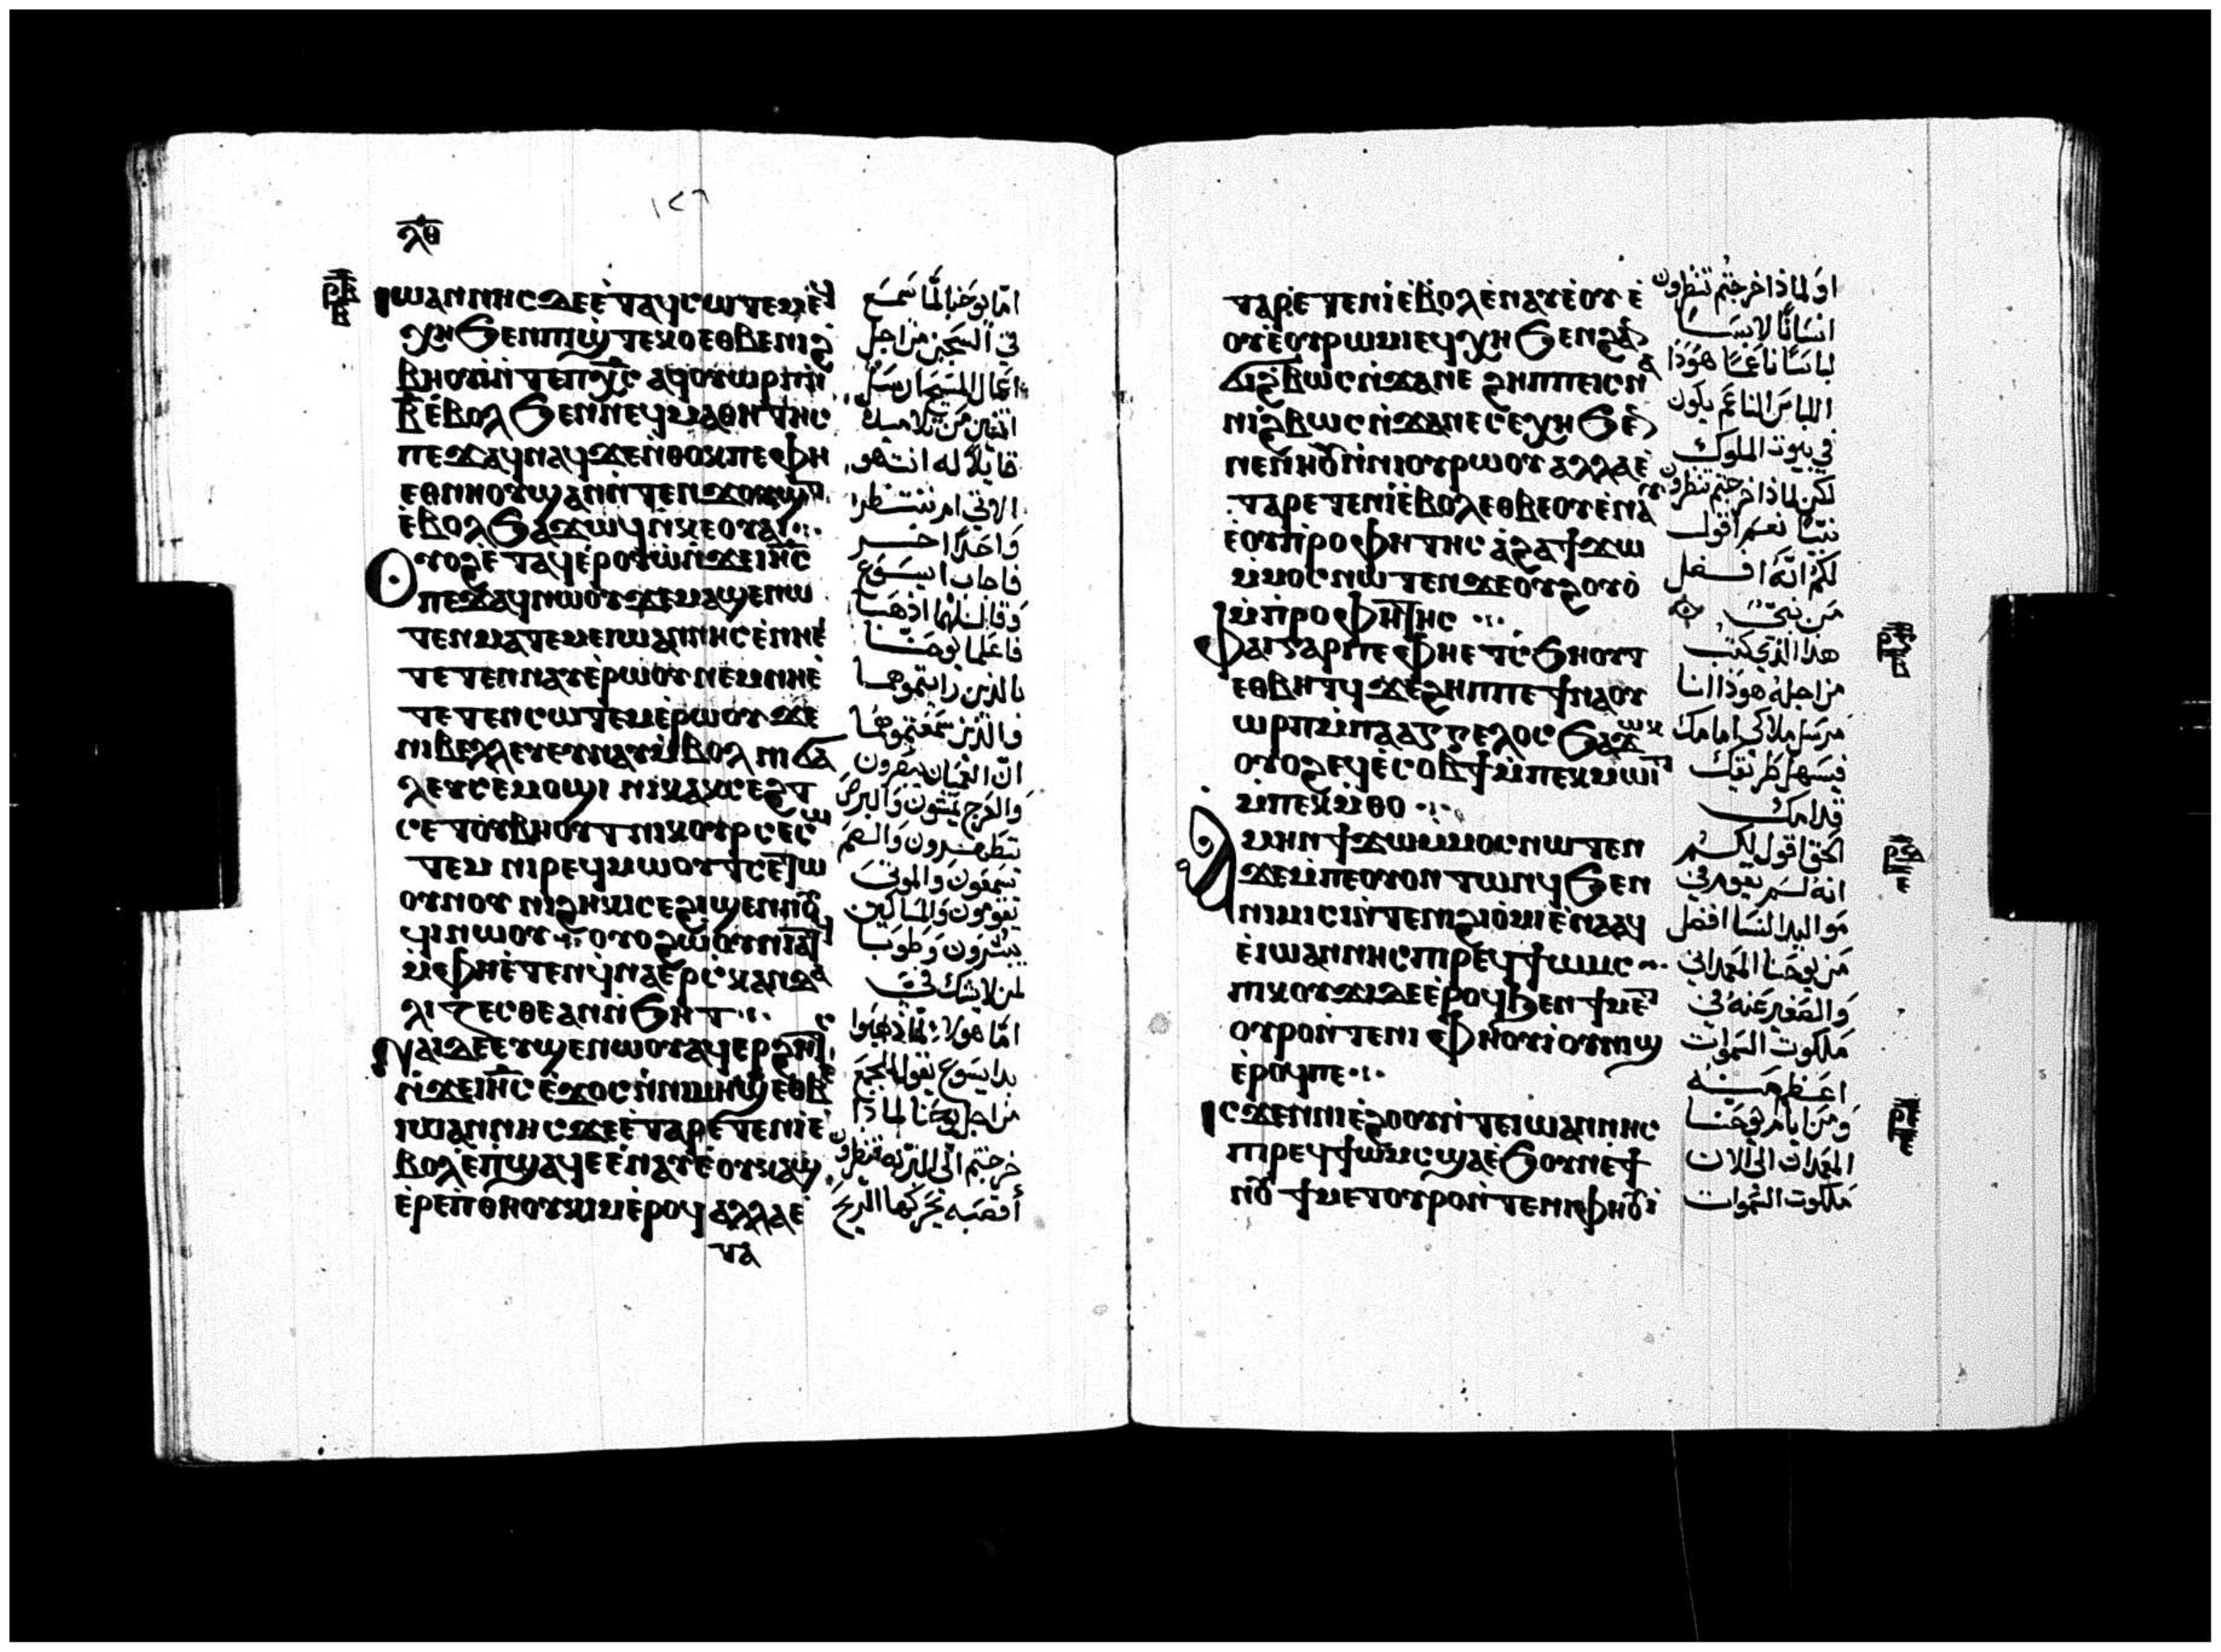 ⲗⲑ
ⲓⲱⲁⲛⲛⲏⲥ ⲇⲉ ⲉ̀ⲧⲁϥⲥⲱⲧⲉⲙ ⲉ̀ϥ
ⲭⲏ ϧⲉⲛ ⲡⲓϣ̀ⲧⲉⲕⲟ ⲉⲑⲃⲉ ⲛⲓϩ
ⲃⲏⲟⲩⲓ̀ ⲛ̀ⲧⲉ ⲡⲭ̅ⲥ̅ ⲁϥⲟⲩⲱⲣⲡ ⲛ̀
ⲃ̅ ⲉ̀ⲃⲟⲗ ϧⲉⲛ ⲛⲉϥⲙⲁⲑⲏⲧⲏⲥ
ⲡⲉϫⲁϥ ⲛⲁϥ ϫⲉ ⲛ̀ⲑⲟⲕ ⲡⲉ ⲫⲏ
ⲉⲑⲛⲏⲟⲩ ϣⲁⲛ ⲛ̀ⲧⲉⲛϫⲟⲩϣⲧ
ⲉ̀ⲃⲟⲗ ϧⲁϫⲱϥ ⲛ̀ⲕⲉⲟⲩⲁⲓ
ⲟⲩⲟϩ ⲉ̀ⲧⲁϥⲉ̀ⲣⲟⲩⲱ̀ ⲛ̀ϫⲉ ⲓⲏ̅ⲥ̅
ⲡⲉϫⲁϥ ⲛⲱⲟⲩ ϫⲉ ⲙⲁϣⲉⲛⲱ
ⲧⲉⲛ ⲙⲁⲧⲉⲙⲉ ⲓⲱⲁⲛⲛⲏⲥ ⲉ̀ⲛⲏⲉ̀
ⲧⲉⲧⲉⲛⲛⲁⲩ ⲉ̀ⲣⲱⲟⲩ ⲛⲉⲙ ⲛⲏⲉ̀
ⲧⲉⲧⲉⲛⲥⲱⲧⲉⲙ ⲉ̀ⲣⲱⲟⲩ ϫⲉ
ⲛⲓⲃⲉⲗⲗⲉⲩ ⲉⲩⲛⲁⲩ ⲙ̀ⲃⲟⲗ ⲛⲓϭⲁ
ⲗⲉⲩ ⲥⲉⲙⲟϣⲓ ⲛⲓⲕⲁⲕⲥⲉϩⲧ
ⲥⲉⲧⲟⲩⲃⲏⲟⲩⲧ ⲛⲓⲕⲟⲩⲣ ⲥⲉⲥⲱ
ⲧⲉⲙ ⲛⲓⲣⲉϥⲙⲱⲟⲩⲧ ⲥⲉⲧⲱ
ⲟⲩⲛⲟⲩ ⲛⲓϩⲏⲕⲓ ⲥⲉϩⲓϣⲉⲛⲛⲟⲩ
ϥⲓ ⲛⲱⲟⲩ ⲟⲩⲟϩ ⲱ̀ⲟⲩⲛⲓⲁⲧϥ
ⲙ̀ⲫⲏⲉ̀ⲧⲉⲛϥ̀ⲛⲁⲉ̀ⲣⲥ̀ⲕⲁⲛⲇⲁ
ⲗⲓⲍⲉⲥⲑⲉ ⲁⲛ ⲛ̀ϧⲏⲧ
ⲛⲁⲓ ⲇⲉ ⲉⲩϣⲉⲛⲱⲟⲩ ⲁϥⲉⲣϩⲏⲧⲥ
ⲛ̀ϫⲉ ⲓⲏ̅ⲥ̅ ⲉ̀ϫⲟⲥ ⲛ̀ⲛⲓⲙⲏϣ ⲉⲑⲃⲉ
ⲓⲱⲁⲛⲛⲏⲥ ϫⲉ ⲉ̀ⲧⲁⲣⲉⲧⲉⲛⲓ̀ ⲉ̀
ⲃⲟⲗ ⲉ̀ⲡ̀ϣⲁϥⲉ ⲉ̀ⲛⲁⲩ ⲉ̀ⲟⲩⲕⲁϣ
ⲉ̀ⲣⲉ ⲡ̀ⲑⲏⲟⲩ ⲕⲓⲙ ⲉ̀ⲣⲟϥ ⲁⲗⲗⲁ ⲉ̀
ⲧⲁ
امّا يوحَنا لمّا سَمعَ
في السّجِن مَن اجل
اعمَال المسِيح ارسَل
اثنين مَن تلاميذه
قايلًا له انت هو
الاتي ام ننتظر
وَاحدًا اخر
فاجاب ايسَوع
وَقال لهما اذهبا
فاعلما يوحَنا
بالذين رايتموهما
وَالذين سَمعَتموهما
انّ العميان يبصرون
وَالعَرج يمشون وَالبرص
يتطهرون وَالصم
يسَمعون وَالموتى
يقومون وَالمساكين
يبشرون وَطوبا
لمن لا يشك فيّ
امّا هولاء لمّا ذهبوا
بدا يسَوع يقول للجمع
مَن اجل يوحنا لماذا
خرجتم الى البريّه تنظرون
أقصَبه تحركها الريح
ⲧⲁⲣⲉⲧⲉⲛⲓ̀ ⲉ̀ⲃⲟⲗ ⲉ̀ⲛⲁⲩ ⲉ̀ⲟⲩ ⲉ̀
ⲟⲩⲉ̀ⲟⲩⲣⲱⲙⲓ ⲉϥⲭⲏ ϧⲉⲛ ϩⲁⲛ
ϩ̀ⲃⲱⲥ ⲛ̀ϫⲁⲛⲉ ϩⲏⲡⲡⲉ ⲓⲥ ⲛⲁ
ⲛⲓϩ̀ⲃⲱⲥ ⲛ̀ϫⲁⲛⲉ ⲥⲉⲭⲏ ϧⲉⲛ
ⲛⲉⲛⲏⲟⲩ ⲛ̀ⲛⲓⲟⲩⲣⲱⲟⲩ ⲁⲗⲗⲁ ⲉ̀
ⲧⲁⲣⲉⲧⲉⲛⲓ̀ ⲉ̀ⲃⲟⲗ ⲉⲑⲃⲉⲟⲩ ⲉ̀ⲛⲁⲩ
ⲉ̀ⲟⲩⲡ̀ⲣⲟⲫⲏⲧⲏⲥ ⲁ̀ϩⲁ ϯϫⲱ
ⲙ̀ⲙⲟⲥ ⲛⲱⲧⲉⲛ ϫⲉ ⲟⲩϩⲟⲩⲟ̀
ⲙ̀ⲡ̀ⲣⲟⲫⲏⲧⲏⲥ
ⲫⲁⲓ ⲅⲁⲣ ⲡⲉ ⲫⲏⲉⲧⲥ̀ϧⲏⲟⲩⲧ
ⲉⲑⲃⲏⲧϥ ϫⲉ ϩⲏⲡⲡⲉ ϯⲛⲁⲟⲩ
ⲱⲣⲡ ⲙ̀ⲡⲁⲁⲅⲅⲉⲗⲟⲥ ϧⲁϫⲱⲕ
ⲟⲩⲟϩ ⲉϥⲉ̀ⲥⲟⲃϯ ⲙ̀ⲡⲉⲕⲙⲱⲓⲧ
ⲙ̀ⲡⲉⲕⲙ̀ⲑⲟ
ⲁⲙⲏⲛ ϯϫⲱ ⲙ̀ⲙⲟⲥ ⲛⲱⲧⲉⲛ
ϫⲉ ⲙ̀ⲡⲉⲟⲩⲟⲛ ⲧⲱⲛϥ ϧⲉⲛ
ⲛⲓⲙⲓⲥⲓ ⲛ̀ⲧⲉ ⲛⲓϩⲓⲟ̀ⲙⲓ ⲉ̀ⲛⲁⲁϥ
ⲉ̀ⲓⲱⲁⲛⲛⲏⲥ ⲡⲓⲣⲉϥϯⲱⲙⲥ
ⲡⲓⲕⲟⲩϫⲓ ⲇⲉ ⲉ̀ⲣⲟϥ ϧⲉⲛ ϯⲙⲉⲧ
ⲟⲩⲣⲟ ⲛ̀ⲧⲉ ⲛⲓⲫⲏⲟⲩⲓ̀ ⲟⲩⲛⲓϣϯ
ⲉ̀ⲣⲟϥ ⲡⲉ
ⲓⲥϫⲉⲛ ⲛⲓⲉ̀ϩⲟⲟⲩ ⲛ̀ⲧⲉ ⲓⲱⲁⲛⲛⲏⲥ
ⲡⲓⲣⲉϥϯⲱⲙⲥ ϣⲁ ⲉ̀ϧⲟⲩⲛ ⲉϯ
ⲛⲟⲩ ϯⲙⲉⲧⲟⲩⲣⲟ ⲛ̀ⲧⲉ ⲛⲓⲫⲏⲟⲩⲓ̀
اوَ لماذا خرجتم تنظرون
انسَانًا لابسَا
لباسَا ناعمًا هوَذا
اللباسَ الناعَم يكون
في بيوت الملوك
لكن لماذا خرجتم تنظرون
نبيّا نعم اقول
لكم انّه افضل
مَن نبيّ
هذا الذي كتب
مَن اجله هوَذا انا
مرسَل ملاكي امامك
فيسَهل طريقك
قدامك
الحَق اقول لكم
انه لم يقوم في
مَواليد النسَا افضل
مَن يوحَنا المعَمداني
وَالصَغير عَنه في
مَلكوت السَموات
اعَظم مَنه
وَمَن ايام يوحَنا
المعَمدان الى الان
مَلكوت السَموات